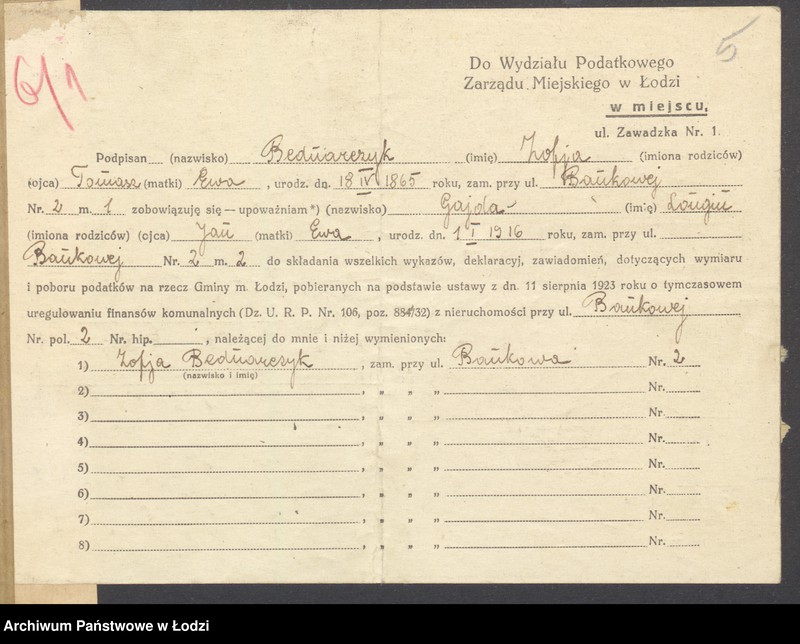 6/1
5
Do Wydziału Podatkowego
Zarządu Miejskiego w Łodzi
w miejscu,
ul. Zawadzka Nr. 1.
Podpisan (nazwisko) Bednarczyk (imię) Zofja (imiona rodziców)
(ojca) Tomasz (matki) Ewa, urodz. dn. 18 IV 1865 roku, zam. przy ul. Bankowej
Nr. 2 m. 1 zobowiązuję się — upoważniam*) (nazwisko) Gajda (imię) Longin
(imiona rodziców) (ojca) Jan (matki) Ewa, urodz. dn. 1 I 1916 roku, zam. przy ul.
Bankowej Nr. 2 m. 2 do składania wszelkich wykazów, deklaracyj, zawiadomień, dotyczących wymiaru
i poboru podatków na rzecz Gminy m. Łodzi, pobieranych na podstawie ustawy z dn. 11 sierpnia 1923 roku o tymczasowem
uregulowaniu finansów komunalnych (Dz. U. R. P. Nr. 106, poz. 884/32) z nieruchomości przy ul. Bankowej
Nr. pol. 2 Nr. hip. , należącej do mnie i niżej wymienionych:
1) Zofja Bednarczyk, zam. przy ul. Bankowa Nr. 2
(nazwisko i imię)
2) , „ „ „ Nr.
3) , „ „ „ Nr.
4) , „ „ „ Nr.
5) , „ „ „ Nr.
6) , „ „ „ Nr.
7) , „ „ „ Nr.
8) , „ „ „ Nr.
Archiwum Państwowe w Łodzi